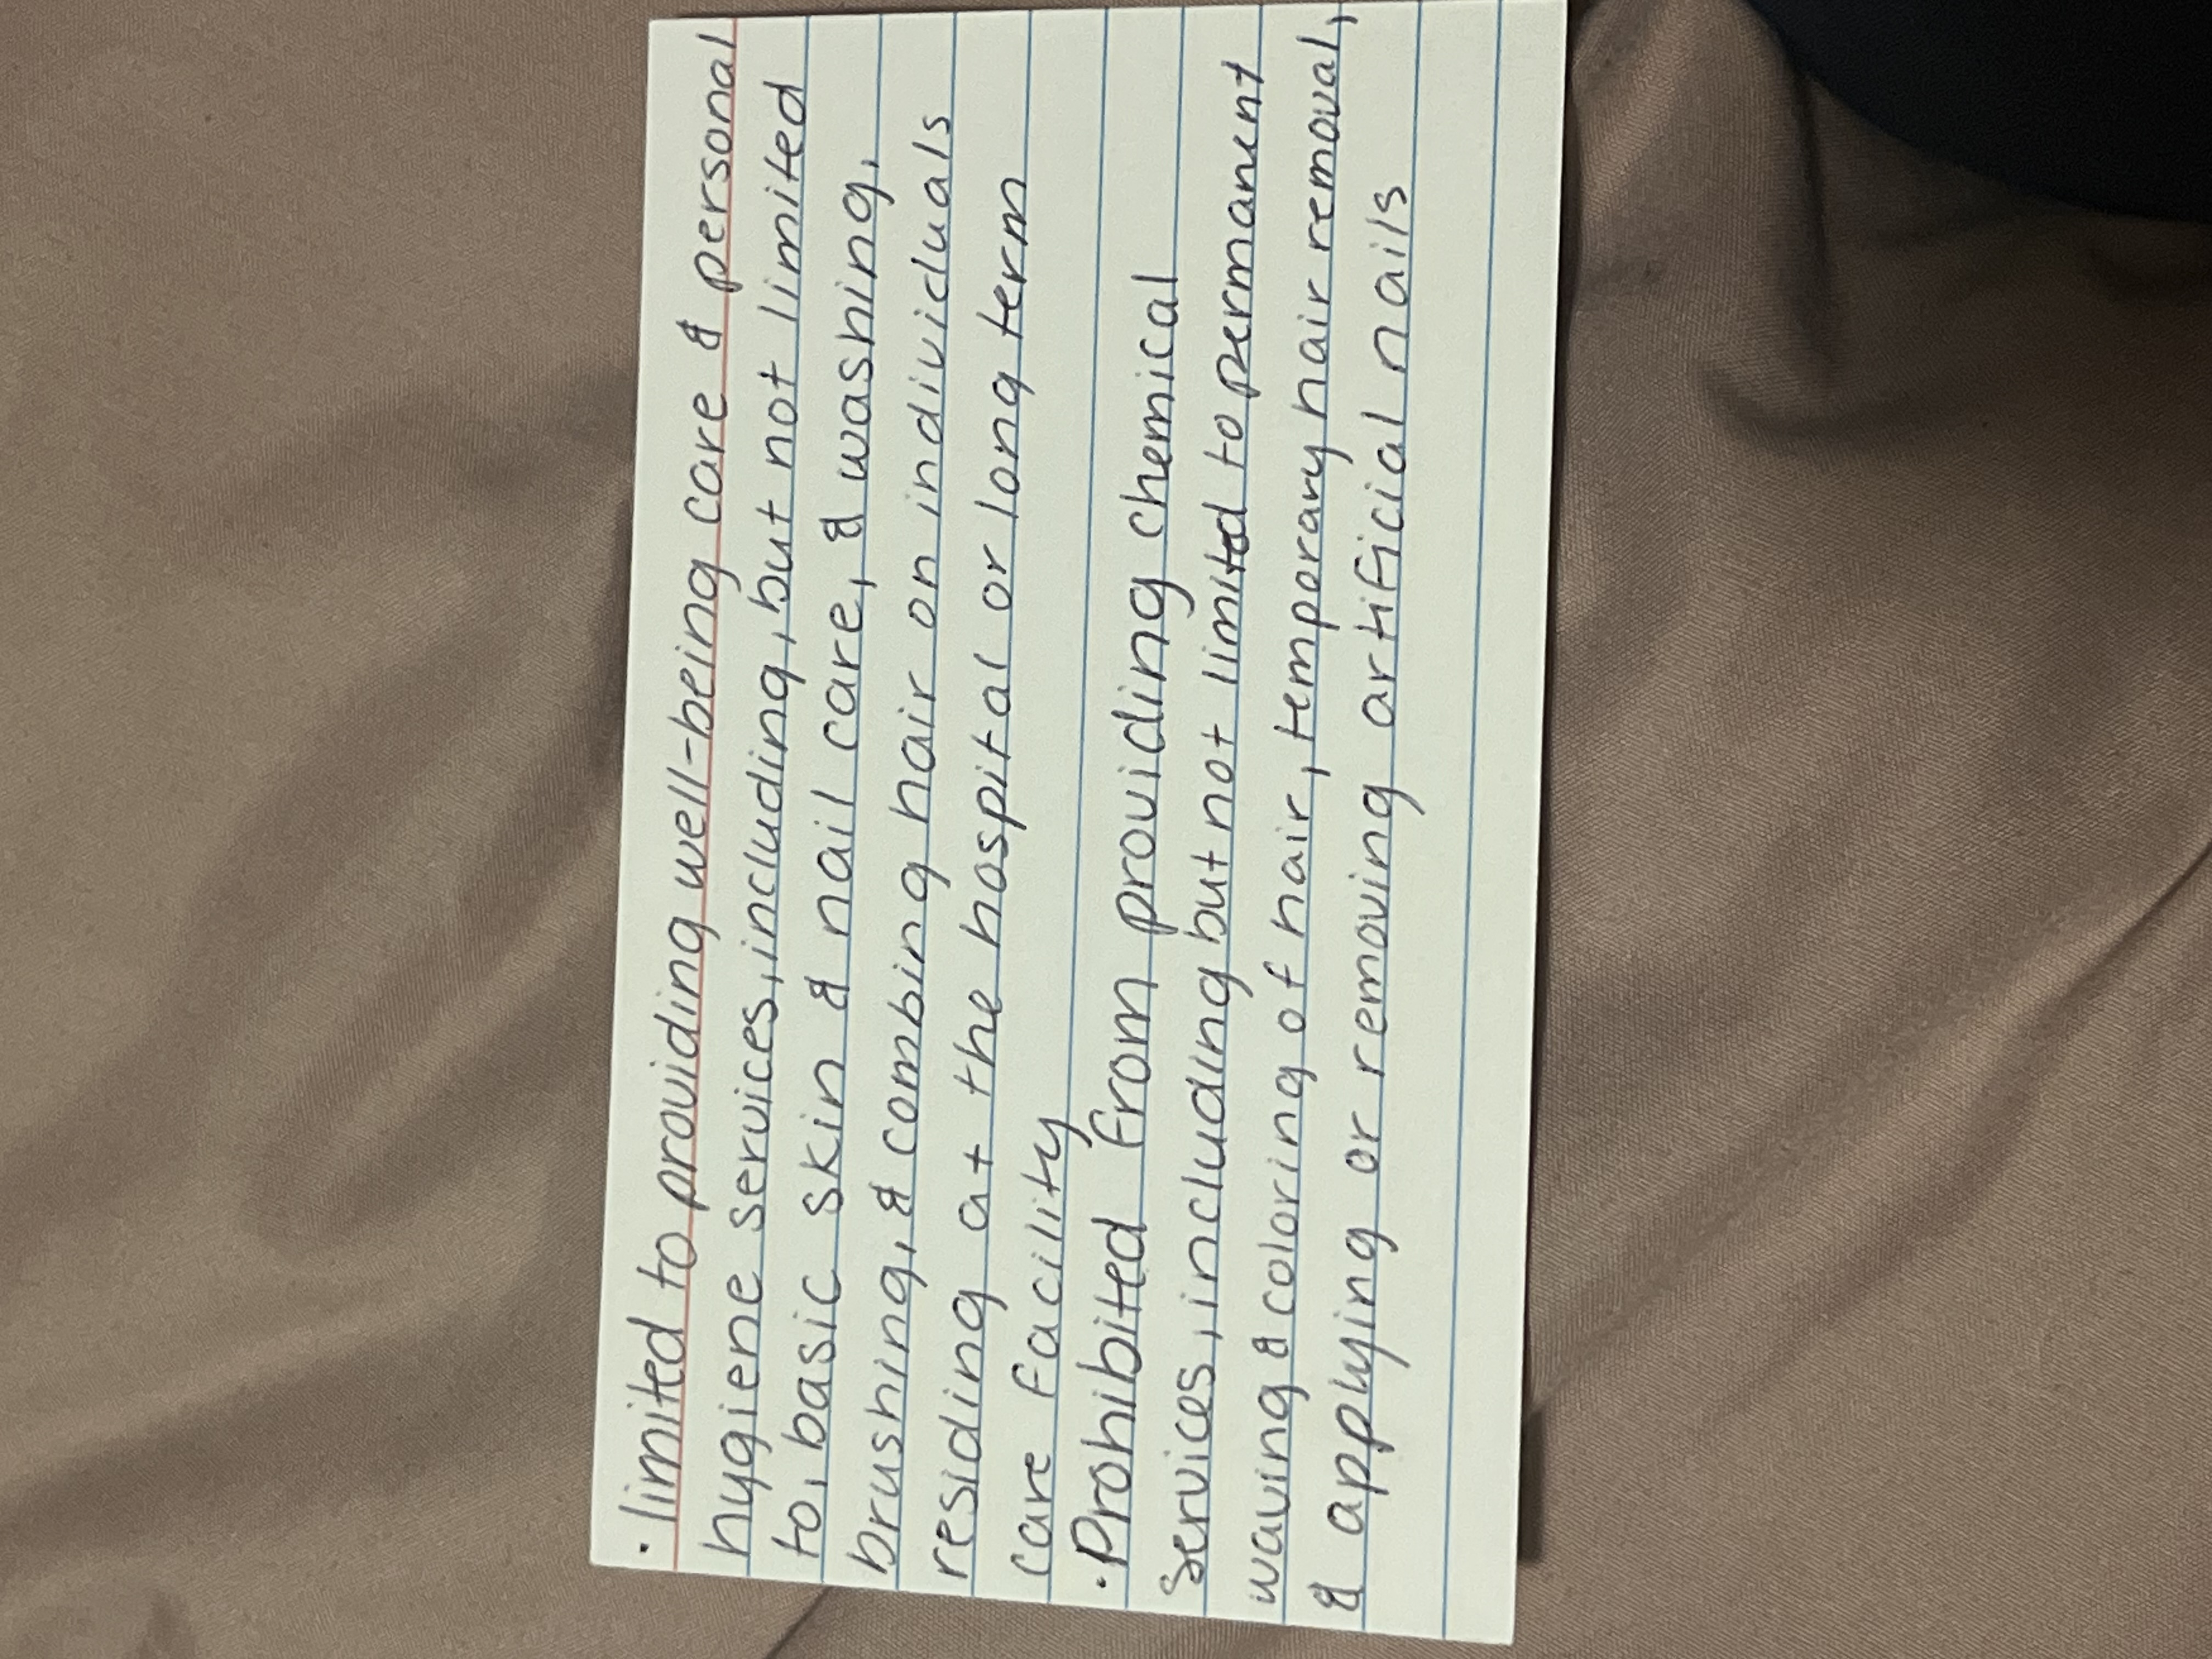 · limited to providing well-being care & personal
hygiene services, including, but not limited
to, basic skin & nail care, & washing,
brushing, & combing hair on individuals
residing at the hospital or long term
care facility
· Prohibited from providing chemical
services, including but not limited to permanent
waving & coloring of hair, temporary hair removal,
& applying or removing artificial nails